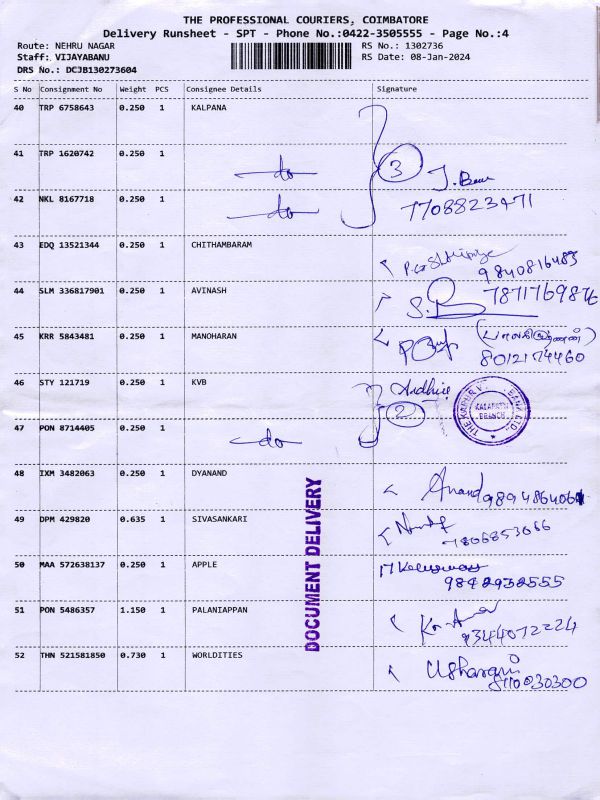 THE PROFESSIONAL COURIERS, COIMBATORE
Delivery Runsheet - SPT - Phone No.:0422-3505555 - Page No.:4
Route: NEHRU NAGAR RS No.: 1302736
Staff: VIJAYABANU RS Date: 08-Jan-2024
DRS No.: DCJB130273604
S No Consignment No Weight PCS Consignee Details Signature
40 TRP 6758643 0.250 1 KALPANA
41 TRP 1620742 0.250 1 do 3 J. Banu
42 NKL 8167718 0.250 1 do 7708823471
43 EDQ 13521344 0.250 1 CHITHAMBARAM 9840816483
44 SLM 336817901 0.250 1 AVINASH 7871769876
45 KRR 5843481 0.250 1 MANOHARAN 8012174460
46 STY 121719 0.250 1 KVB 2 THE KARUR V BANK LTD. KALAPATTI BRANCH
47 PON 8714405 0.250 1 do
48 IXM 3482063 0.250 1 DYANAND Anand 9894864061
49 DPM 429820 0.635 1 SIVASANKARI 7806853066
50 MAA 572638137 0.250 1 APPLE 9842932555
51 PON 5486357 1.150 1 PALANIAPPAN 9344072224
52 THN 521581850 0.730 1 WORLDITIES Usharani 8110030300
DOCUMENT DELIVERY